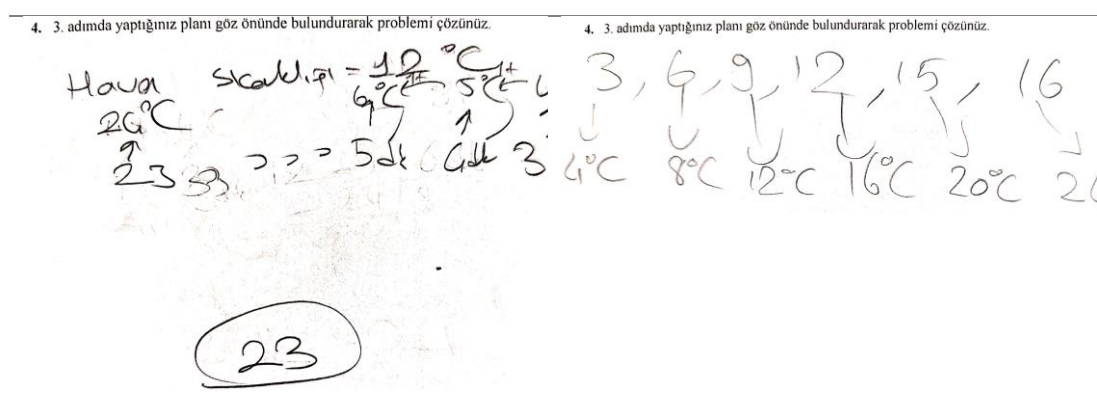 4. 3. adımda yaptığınız planı göz önünde bulundurarak problemi çözünüz.
Hava sıcaklığı = 12 °C
6°C 5°C
26°C
23 5dk 4dk 3
23
4. 3. adımda yaptığınız planı göz önünde bulundurarak problemi çözünüz.
3, 6, 9, 12, 15, 16
4°C 8°C 12°C 16°C 20°C 2